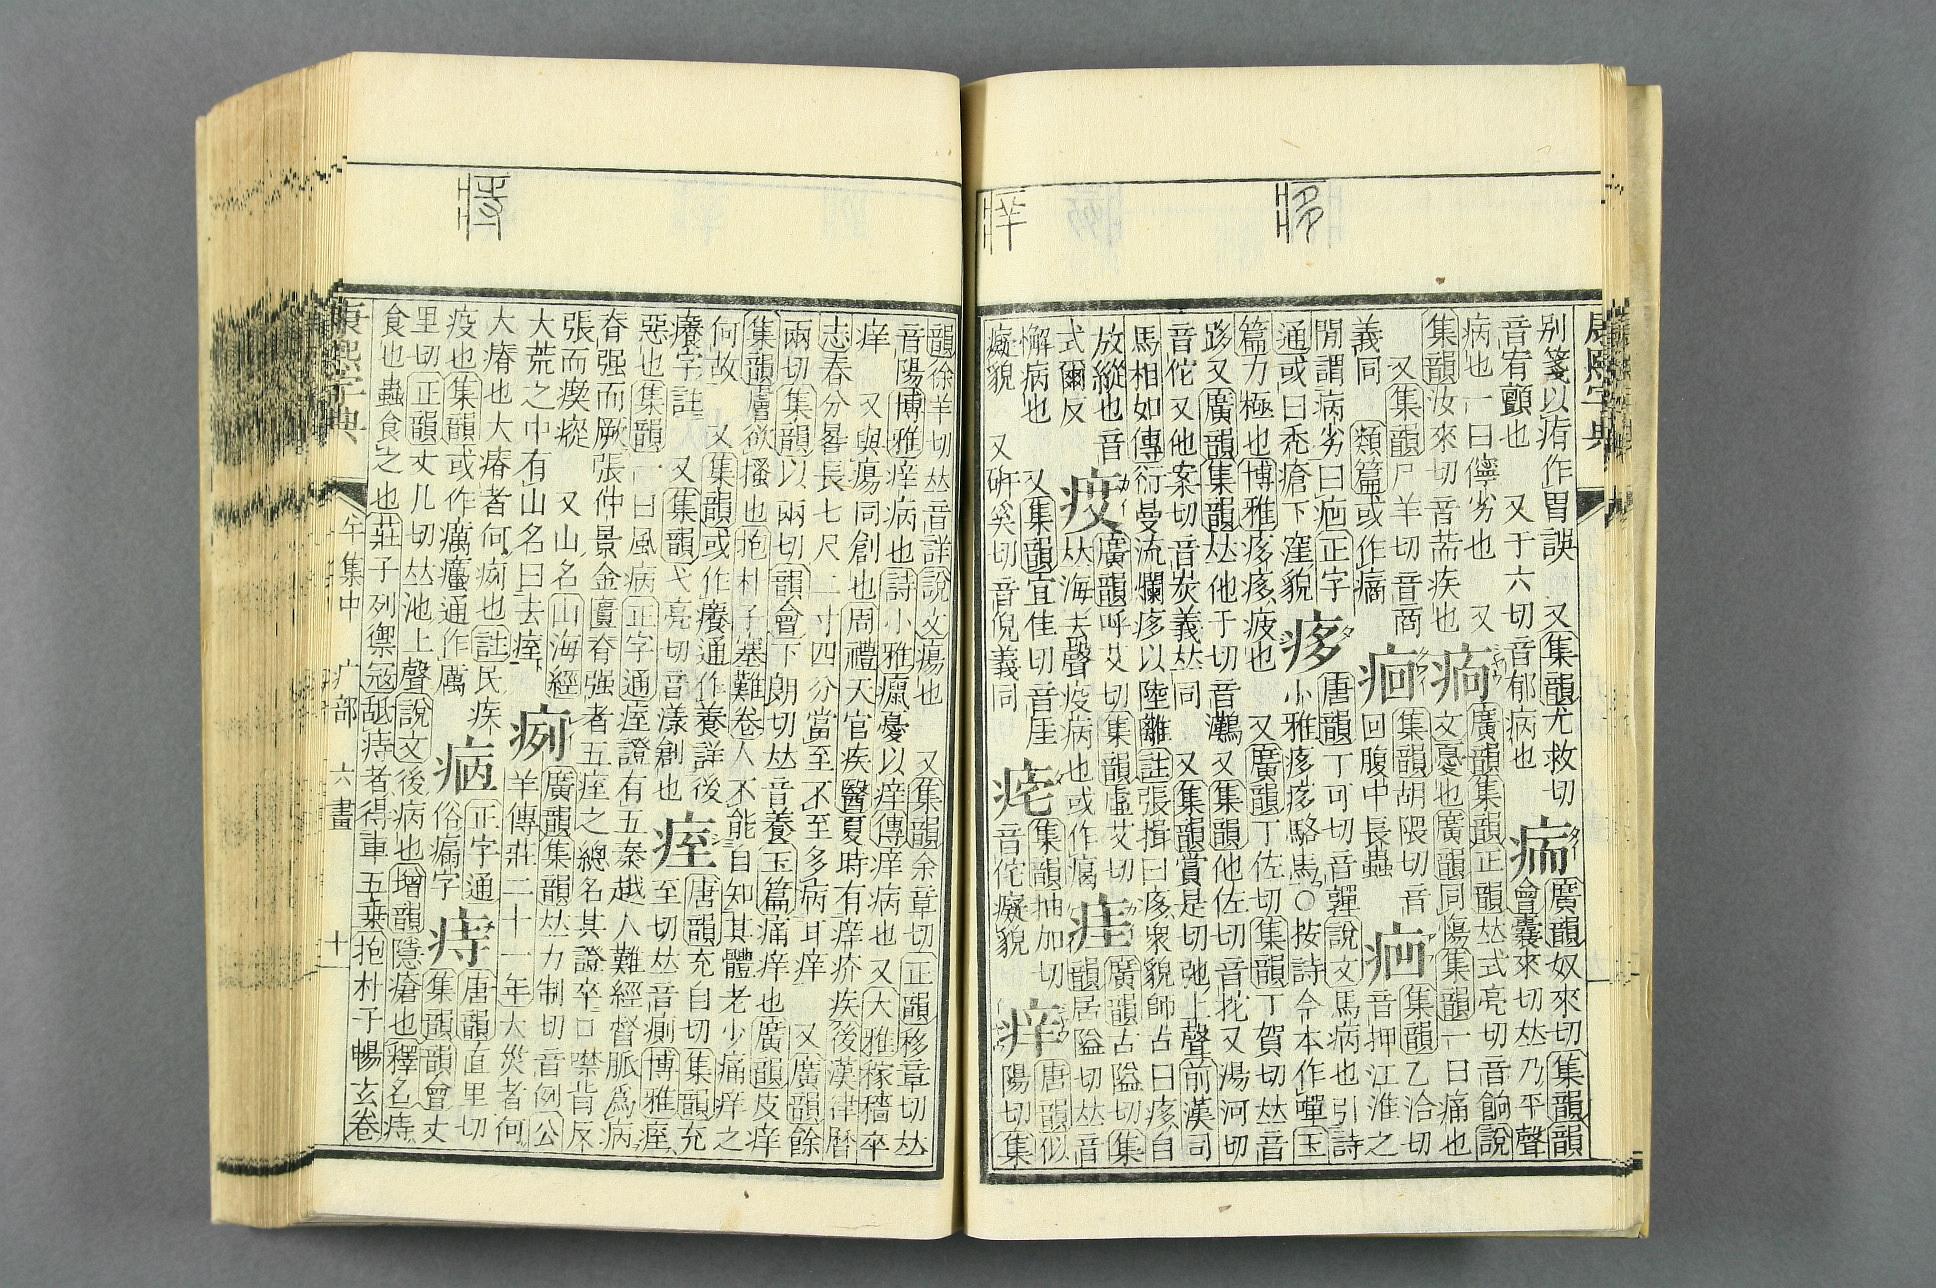 康熙字典
別箋以㾈作胃誤　又集韻尤救切
音宥顫也　又于六切音郁病也
病也一曰儜劣也　又
集韻汝來切音荋疾也
又集韻尸羊切音商
義同　類篇或作𤸡
痏
廣韻奴來切集韻韻
會囊來切𠀤乃平聲
廣韻集韻正韻𠀤式亮切音餉說
文憂也廣韻同傷集韻一曰痛也
痐
集韻胡隈切音
回腹中長蟲
集韻乙洽切
音押江淮之
閒謂病劣曰疤正字
通或曰禿瘡下窪貌
痑
唐韻丁可切音嚲說文馬病也引詩
小雅痑痑駱馬○按詩今本作嘽玉
篇力極也博雅痑痑疲也　又廣韻丁佐切集韻丁賀切𠀤音
跢又廣韻集韻𠀤他于切音灘又集韻他佐切音拕又湯河切
音佗又他案切音炭義𠀤同　又集韻賞是切弛上聲前漢司
馬相如傳衍曼流爛痑以陸離註張揖曰痑衆貌師古曰痑自
放縱也音
式爾反
疫
廣韻呼艾切集韻虛艾切
𠀤海去聲疫病也或作㾚
痓
廣韻古隘切集
韻居隘切𠀤音
解病也　又集韻宜佳切音厓
癡貌　又硏奚切音倪義同
痄
集韻抽加切
音佗癡貌
痒
唐韻似
陽切集
韻徐羊切𠀤音詳說文瘍也　又集韻余章切正韻移章切𠀤
音陽博雅痒病也詩小雅癙憂以痒傳痒病也又大雅稼穡卒
痒　又與瘍同創也周禮天官疾醫夏時有痒疥疾後漢律曆
志春分晷長七尺二寸四分當至不至多病耳痒　又廣韻餘
兩切集韻以兩切韻會下朗切𠀤音養玉篇痛痒也廣韻皮痒
集韻膚欲搔也抱朴子塞難卷人不能自知其體老少痛痒之
何故　又集韻或作癢通作養詳後
癢字註　又集韻弋亮切音漾創也
痓
唐韻充自切集韻充
至切𠀤音廁博雅痓
惡也集韻一曰風病正字通痓證有五秦越人難經督脈爲病
脊强而厥張仲景金匱脊强者五痓之總名其證卒口噤背反
張而瘈瘲　又山名山海經
大荒之中有山名曰去痓
痢
廣韻集韻𠀤力制切音例公
羊傳莊二十一年大災者何
大瘠也大瘠者何㾐也註民疾
疫也集韻或作癘𤻤通作厲
㾞
正字通
俗痬字
痔
唐韻直里切
集韻韻會丈
里切正韻丈几切𠀤池上聲說文後病也增韻隱瘡也釋名痔
食也蟲食之也莊子列禦寇舐痔者得車五乗抱朴子暢玄卷
康熙字典
午集中　疒部　六畫　十